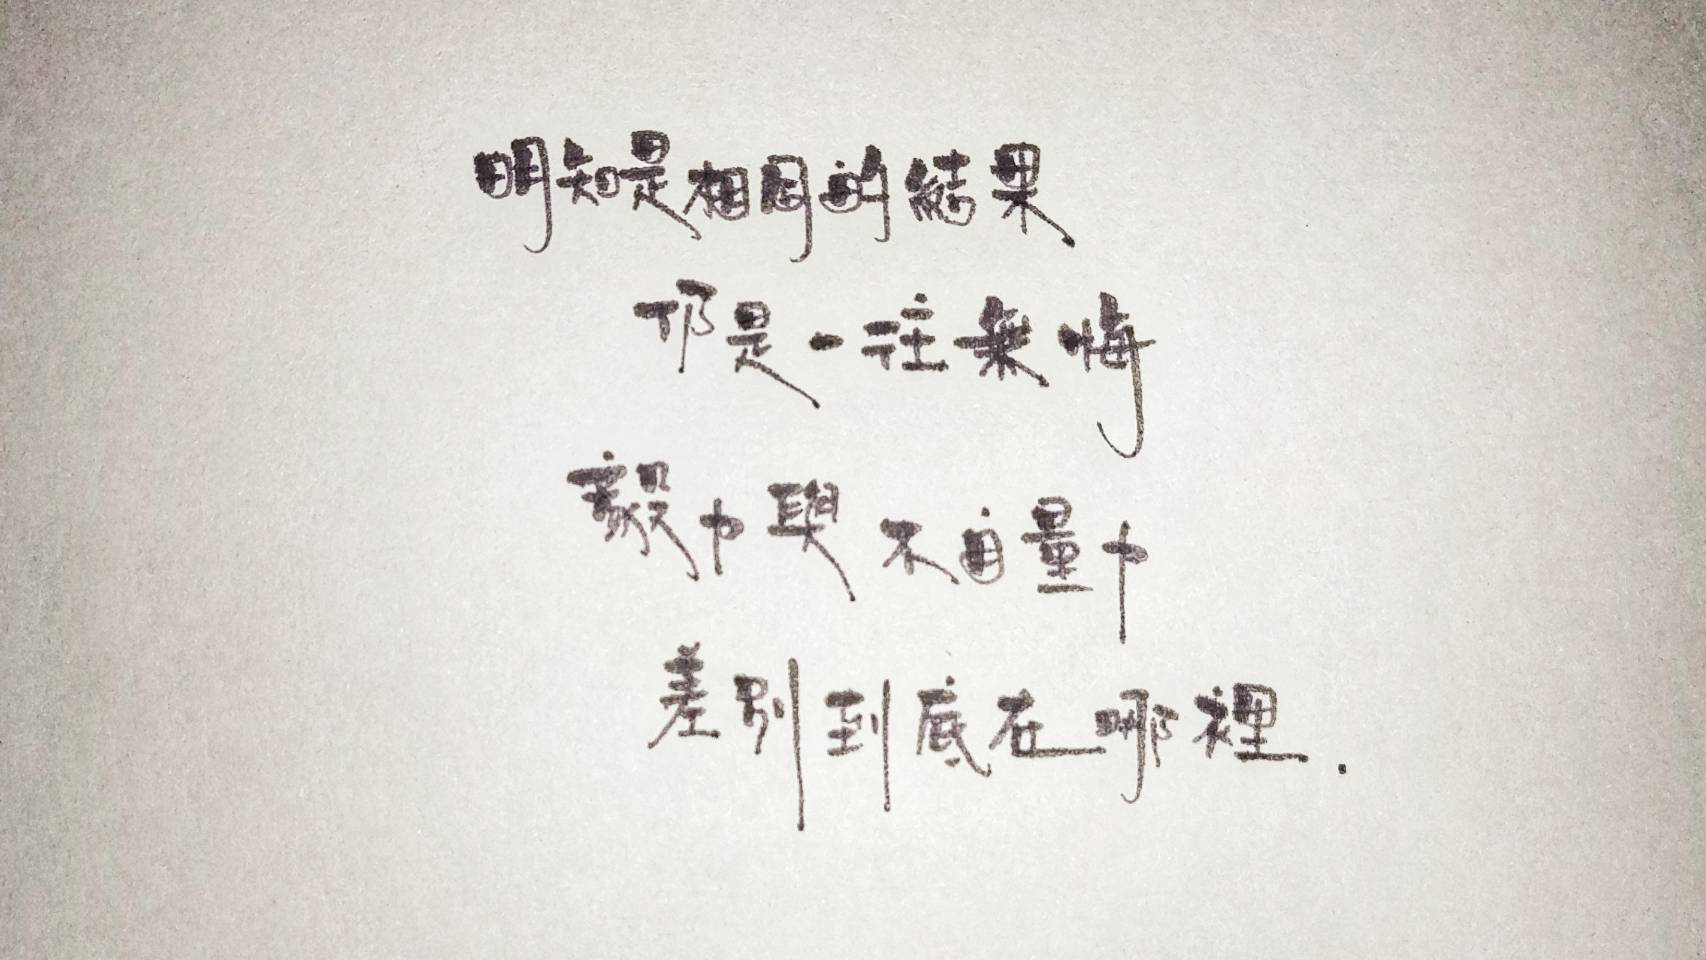 明知是相同的結果
仍是一往無悔
毅力與不自量力
差別到底在哪裡.